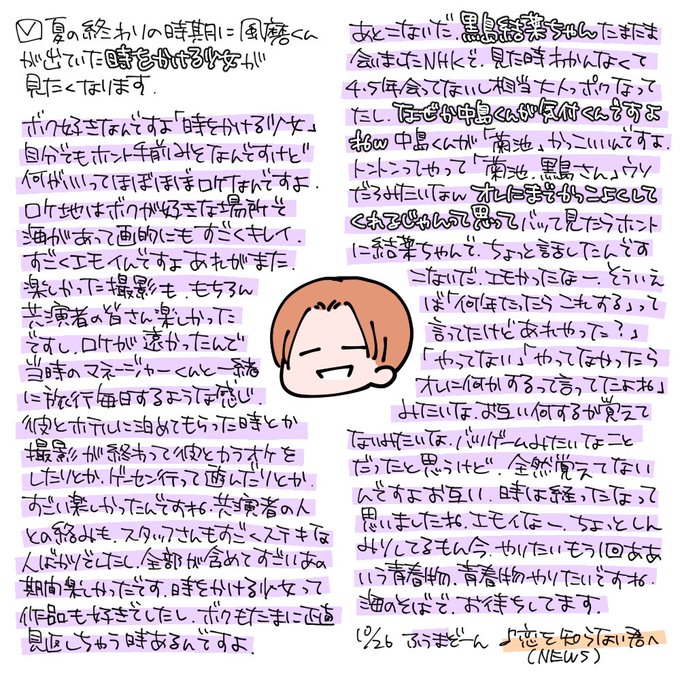 夏の終わりの時期に風磨くん
が出ていた時をかける少女が
見たくなります.
ボク好きなんですよ「時をかける少女」
自分でもホント手前みそなんですけど
何がいいってほぼほぼロケなんですよ.
ロケ地はボクが好きな場所で
海があって画的にもすごくキレイ.
すごくエモイんですよあれがまた.
楽しかった撮影も.もちろん
共演者の皆さん楽しかった
ですし.ロケが遠かったんで
当時のマネージャーくんと一緒
に旅行毎日するような感じ.
彼とホテルに泊めてもらった時とか
撮影が終わって彼とカラオケを
したりとか.ゲーセン行って遊んだりとか
すごい楽しかったんですね.共演者の人
との絡みも.スタッフさんもすごくステキな
人ばかりでしたし.全部が含めてすごいあの
期間楽しかったです.時をかける少女って
作品も好きでしたし.ボクもたまに正直
見返しちゃう時あるんですよ.
あとこないだ.黒島結菜ちゃんたまたま
会いましたNHKで.見た時わかんなくて
4.5年会ってないし相当大人っぽくなって
たし.なぜか中島くんが気付くんですよ
ねw 中島くんが「菊池」かっこいいんですよ.
トントンってやって「菊池.黒島さん」ウソ
だろみたいな.オレにまでかっこよくして
くれてんじゃんって思ってバッて見たらホント
に結菜ちゃんで.ちょっと話したんです
こないだ.エモかったなー.そういえ
ば「何年たったらこれする」って
言ってたけどあれやった?」
「やってない」「やってなかったら
オレに何かするって言ってたよね」
みたいな.お互い何するか覚えて
ないみたいな.バツゲームみたいなこと
だったと思うけど.全然覚えてない
んですよお互い.時は経ったなって
思いましたね.エモイなー.ちょっとしん
みりしてるもん今.やりたいもう1回ああ
いう青春物.青春物やりたいですね.
海のそばで.お待ちしてます.
10/26 ふうまぞーん ♪恋を知らない君へ
(NEWS)